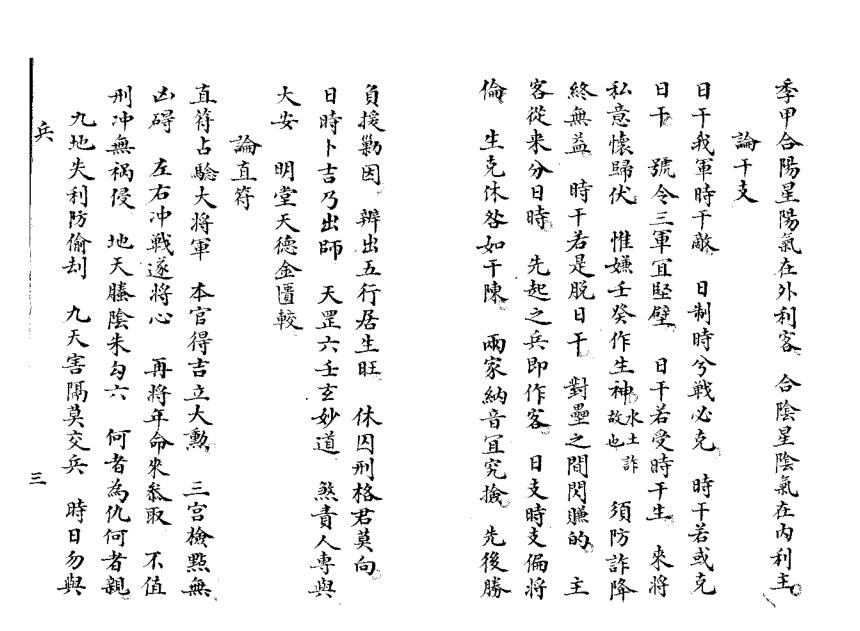 季甲合陽星陽氣在外利客 合陰星陰氣在內利主
論干支
日干我軍時干敵 日制時兮戰必克 時干若或克
日干 號令三軍宜堅壁 日干若受時干生 來將
私意懷歸伏 惟嫌壬癸作生神水土詐故也 須防詐降
終無益 時干若是脫日干 對壘之間閃賺的 主
客從來分日時 先起之兵即作客 日支時支偏將
倫 生克休咎如干陳 兩家納音宜究撿 先後勝
負援勦因 辨出五行居生旺 休囚刑格君莫向
日時卜吉乃出師 天罡六壬玄妙道 煞貴人專與
大安 明堂天德金匱較
論直符
直符占驗大將軍 本官得吉立大勳 三宮檢點無
凶碍 左右冲戰遂將心 再將年命來叅取 不值
刑冲無禍侵 地天螣陰朱勾六 何者為仇何者親
九地失利防偷刦 九天害隔莫交兵 時日勿與
兵
三